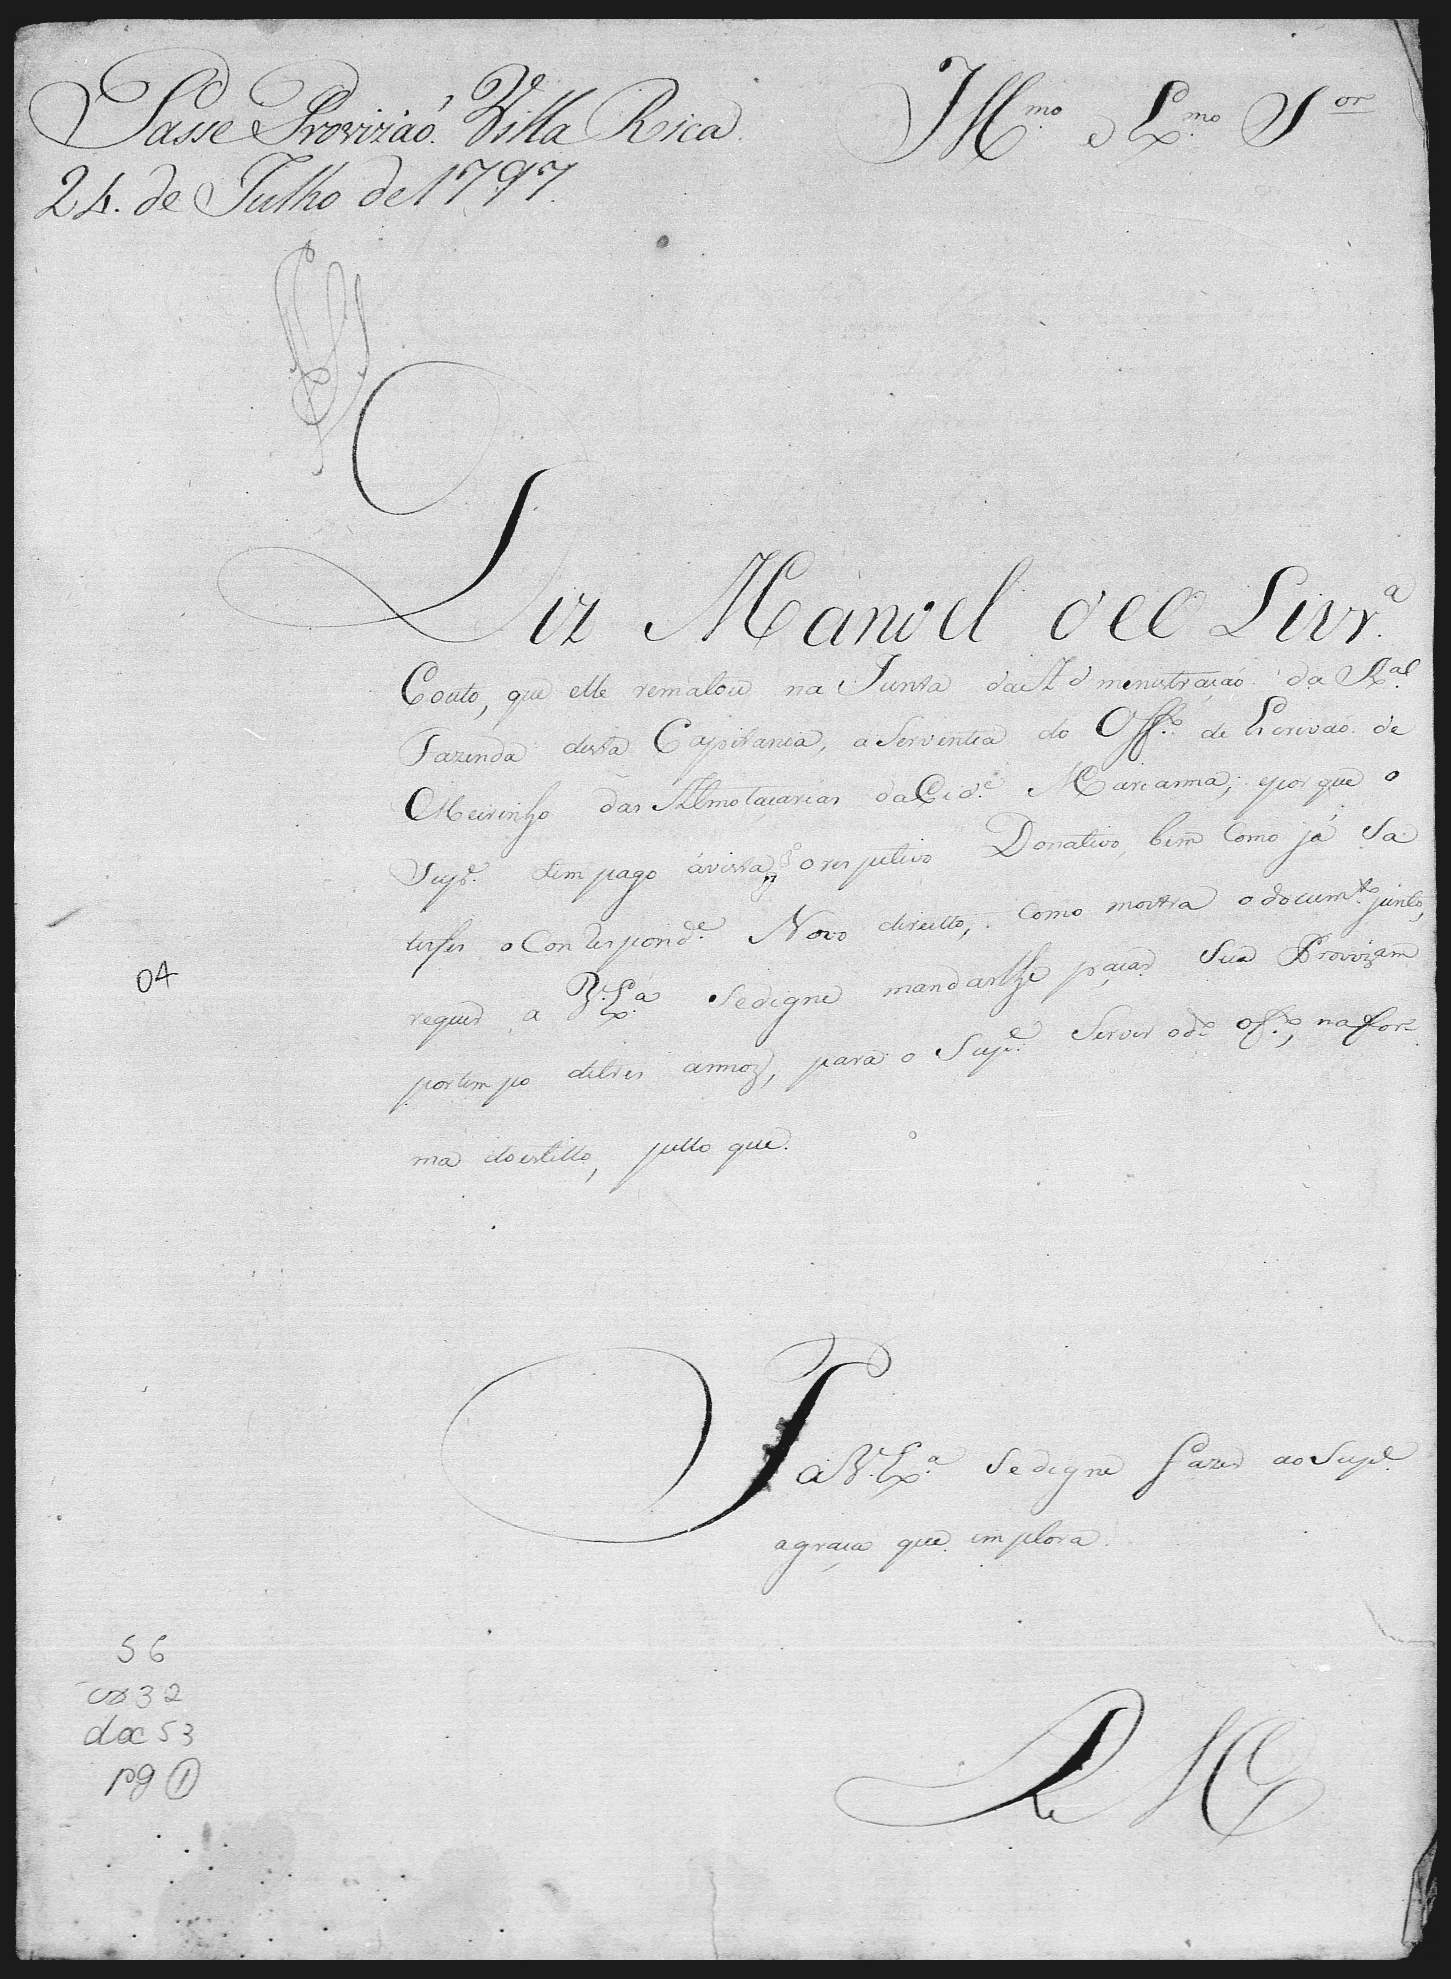 Passe Provizaõ. Villa Rica
24. de Julho de 1797.
Ill.mo e Ex.mo S.or
Diz Manoel de Olivr.a
Couto, que elle rematou na Junta da Admenistraçaõ da R.al
Fazenda desta Capitania, a Serventia do Off.o de Escrivaõ de
Meirinho das Almotaçarias da Cid.e Marianna; e porque o
Sup.e tem pago á vista o respetivo Donativo, bem Como já Sa
tisfes o Correspond.e Novo direito, Como mostra o docum.to junto,
requer a V. Ex.a Se digne mandarlhe paçar Sua Provizam
por tempo de tres annos, para o Sup.e Servir o d.o off.o, na for
ma do estillo, pello que.
P a V. Ex.a Se digne fazer ao Sup.e
a graça que implora.
E R M
04
56
cx 32
doc 53
pg 1